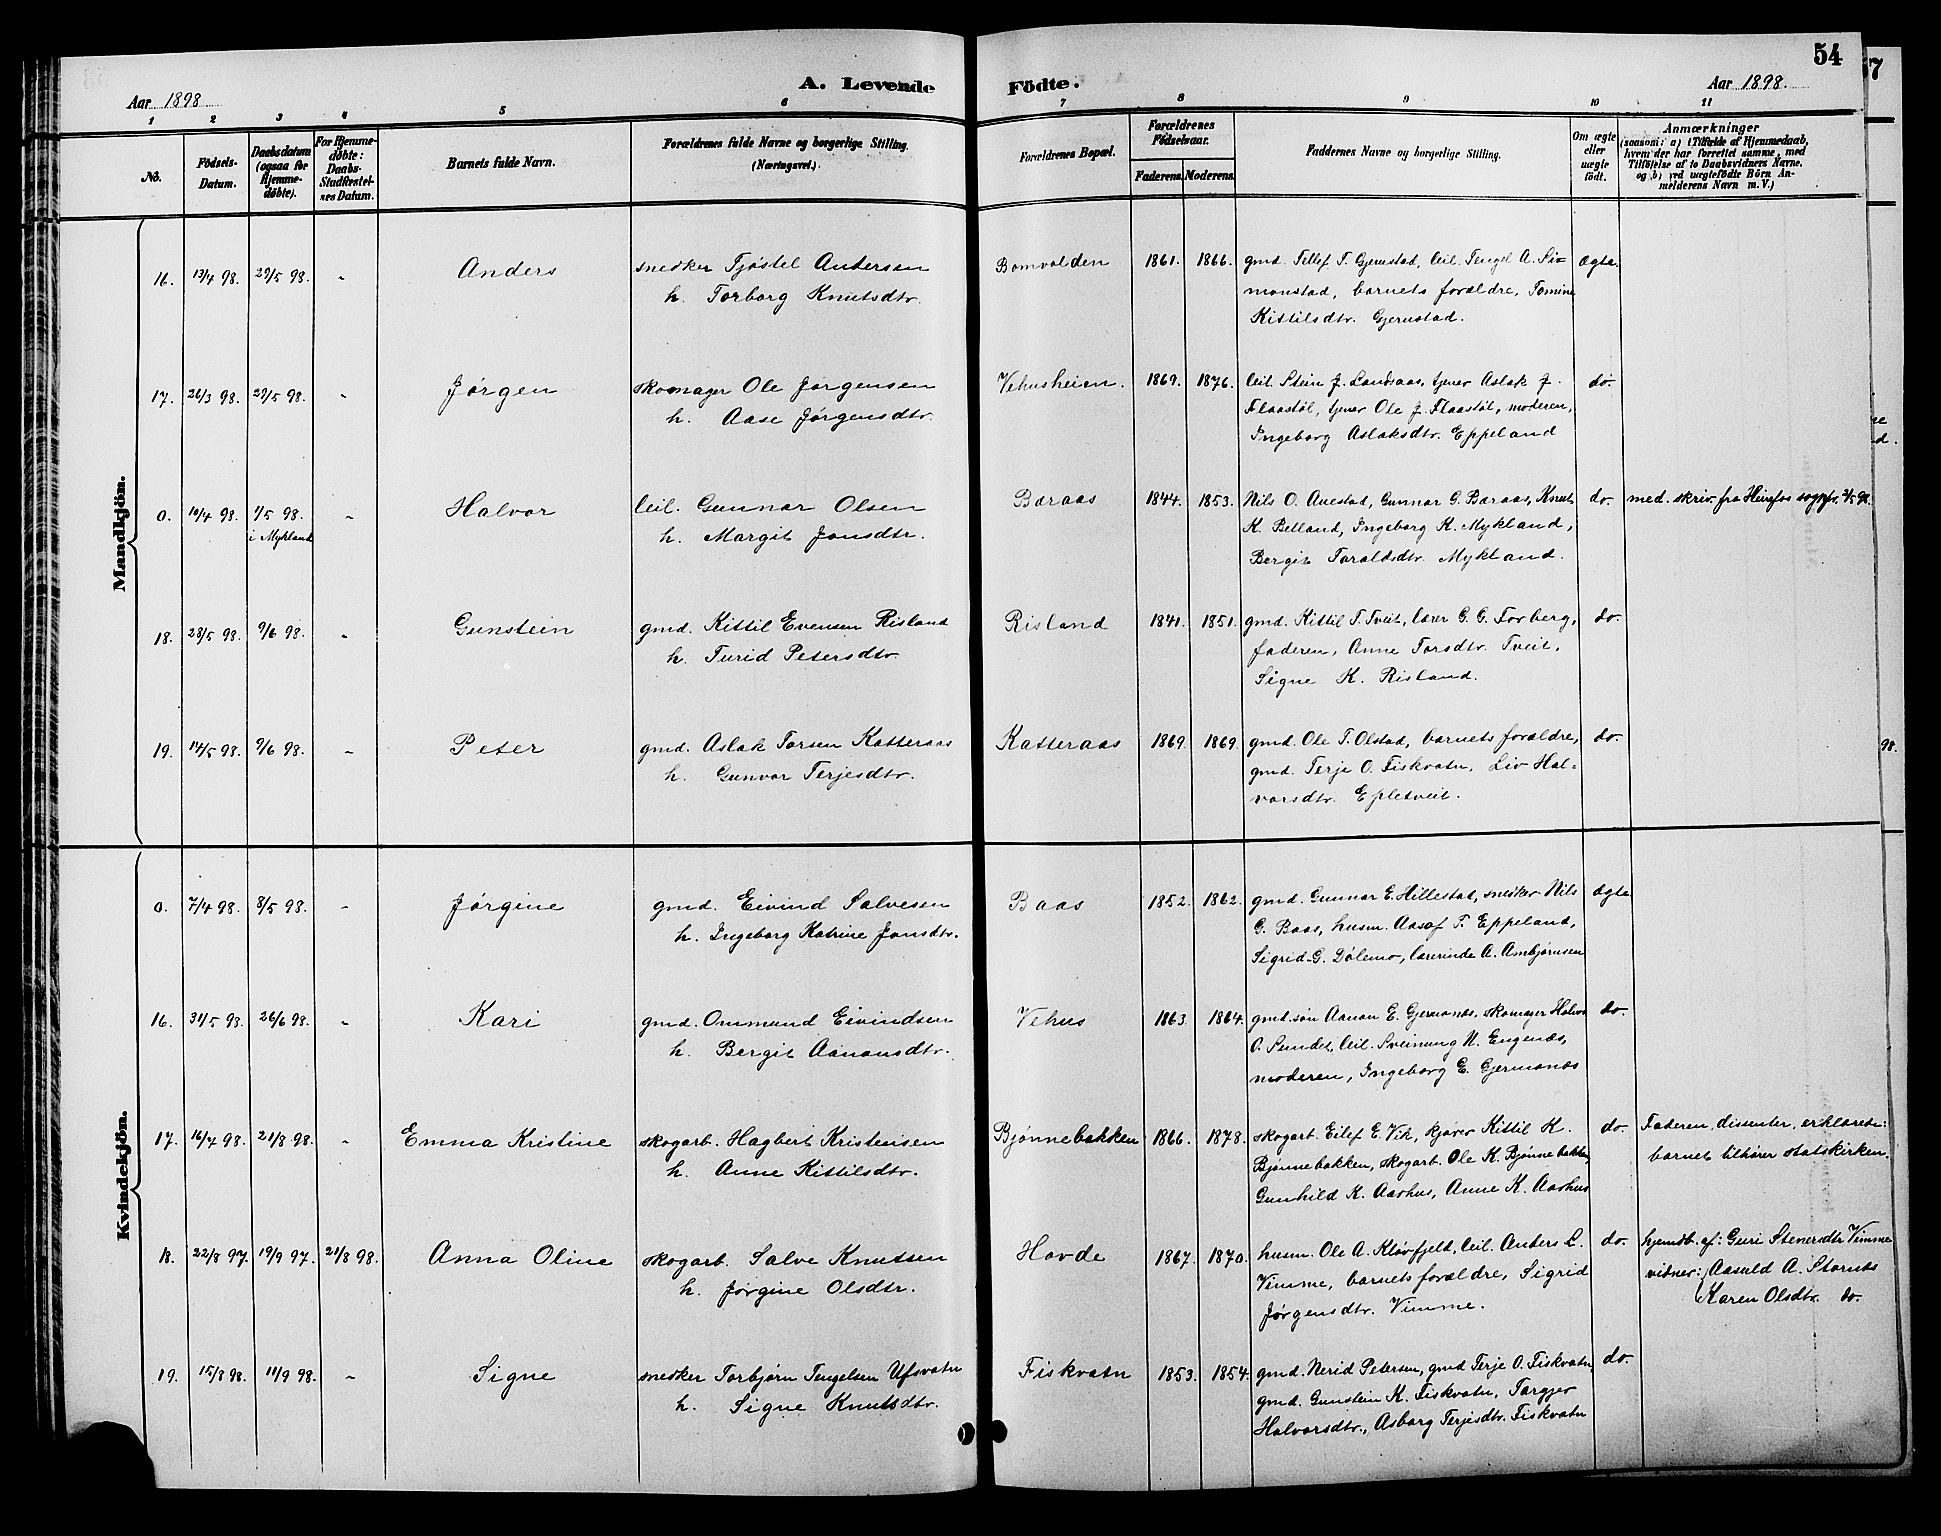 54
A. Levende Födte.
Aar 1898
Aar 1898.
1 2 3 4 5 6 7 8 9 10 11
No.
Födsels-Datum.
Daabsdatum (ogsaa for Hjemmedøbte).
For Hjemmedøbte: Daabs-Stadfæstelses Datum.
Barnets fulde Navn.
Forældrenes fulde Navne og borgerlige Stilling. (Næringsvei.)
Forældrenes Bopæl.
Forældrenes Födselsaar.
Faderens. Moderens.
Faddernes Navne og borgerlige Stilling.
Om ægte eller uægte født.
Anmærkninger
(saasom: a) i Tilfælde af Hjemmedaab, hvem der har forrettet samme, med Tilföielse af to Daabsvidners Navne, og b) ved uægtefödte Börn Anmelderens Navn m. V.)
Mandkjön.
16. 13/4 98. 29/5 98. - Anders snedker Tjøstel Andersen Bomvolden 1861. 1866. gmd. Tellef T. Gjerustad, leil. Tengel A. Si= ægte.
h. Torborg Knutsdtr. monstad, barnets forældre, Tomine
Kittilsdtr. Gjerustad.
17. 26/3 98. 29/5 98. - Jørgen skomager Ole Jørgensen Vehusheien. 1869. 1876. leil. Stein J. Landsaas, tjener Aslak J. do.
h. Aase Jørgensdtr. Flaastøl, tjener Ole J. Flaastøl, moderen,
Ingeborg Aslaksdtr. Eppeland
0. 10/4 98. 1/5 98. - Halvor leil. Gunnar Olsen Baraas 1844. 1853. Nils O. Auestad, Gunnar G. Baraas, Knut do. med. skriv. fra
i Mykland h. Margit Jonsdtr. K. Belland, Ingeborg K. Mykland,
Bergit Taraldsdtr. Mykland.
18. 28/5 98. 9/6 98. - Gunstein gmd. Kittil Evensen Risland Risland 1841. 1851. gmd. Kittil T. Tveit, lærer G. G. Forberg, do.
h. Turid Petersdtr. faderen, Anne Torsdtr. Tveit,
Signe K. Risland.
19. 14/5 98. 9/6 98. - Peter gmd. Aslak Torsen Katteraas Katteraas 1869. 1869. gmd. Ole T. Olstad, barnets forældre, do.
h. Gunvor Terjesdtr. gmd. Terje O. Fiskvatn, Liv Hal=
vorsdtr. Epletveit.
Kvindekjön.
0. 7/4 98. 8/5 98. - Jørgine gmd. Eivind Salvesen Baas 1852. 1862. gmd. Gunnar E. Hillestad, snedker Nils ægte
h. Ingeborg Katrine Jonsdtr. G. Baas, husm. Aasof T. Eppeland,
Sigrid G. Dølemo, lærerinde A. Ambjørnsen
16. 31/5 98. 26/6 98. - Kari gmd. Ommund Eivindsen Vehus 1863. 1864. gmd.søn Aanon E. Gjermonæs, skomager Halvor do.
h. Bergit Aanonsdtr. O. Sundet, leil. Sveinung N. Engenæs,
moderen, Ingeborg E. Gjermonæs
17. 16/4 98. 21/8 98. - Emma Kristine skogarb. Hagbert Kristensen Bjønnebakken 1866. 1878. skogarb. Eilef E. Vik, kjører Kittil K. do. Faderen, dissenter, erklærede:
h. Anne Kittilsdtr. Bjønnebakken, skogarb. Ole K. Bjønnebakken, barnet tilhører statskirken.
Gunhild K. Aarhus, Anne K. Aarhus
18. 22/8 97. 19/9 97. 21/8 98. Anna Oline skogarb. Salve Knutsen Hovde 1867. 1870. husm. Ole A. Kløvfjeld, leil. Anders L. do. hjemdb. af: Guri Stenersdtr. Vimme
h. Jørgine Olsdtr. Vimme, barnets forældre, Sigrid vidner: Aasuld A. Stornæs
Jørgensdtr. Vimme. Karen Olsdtr. do.
19. 15/8 98. 11/9 98. - Signe snedker Torbjørn Tengelsen Ufsvatn Fiskvatn 1853. 1854. gmd. Nerid Petersen, gmd Terje O. Fiskvatn, do.
h. Signe Knutsdtr. gmd. Gunstein K. Fiskvatn, Torgjer
Halvorsdtr., Asborg Terjesdtr. Fiskvatn